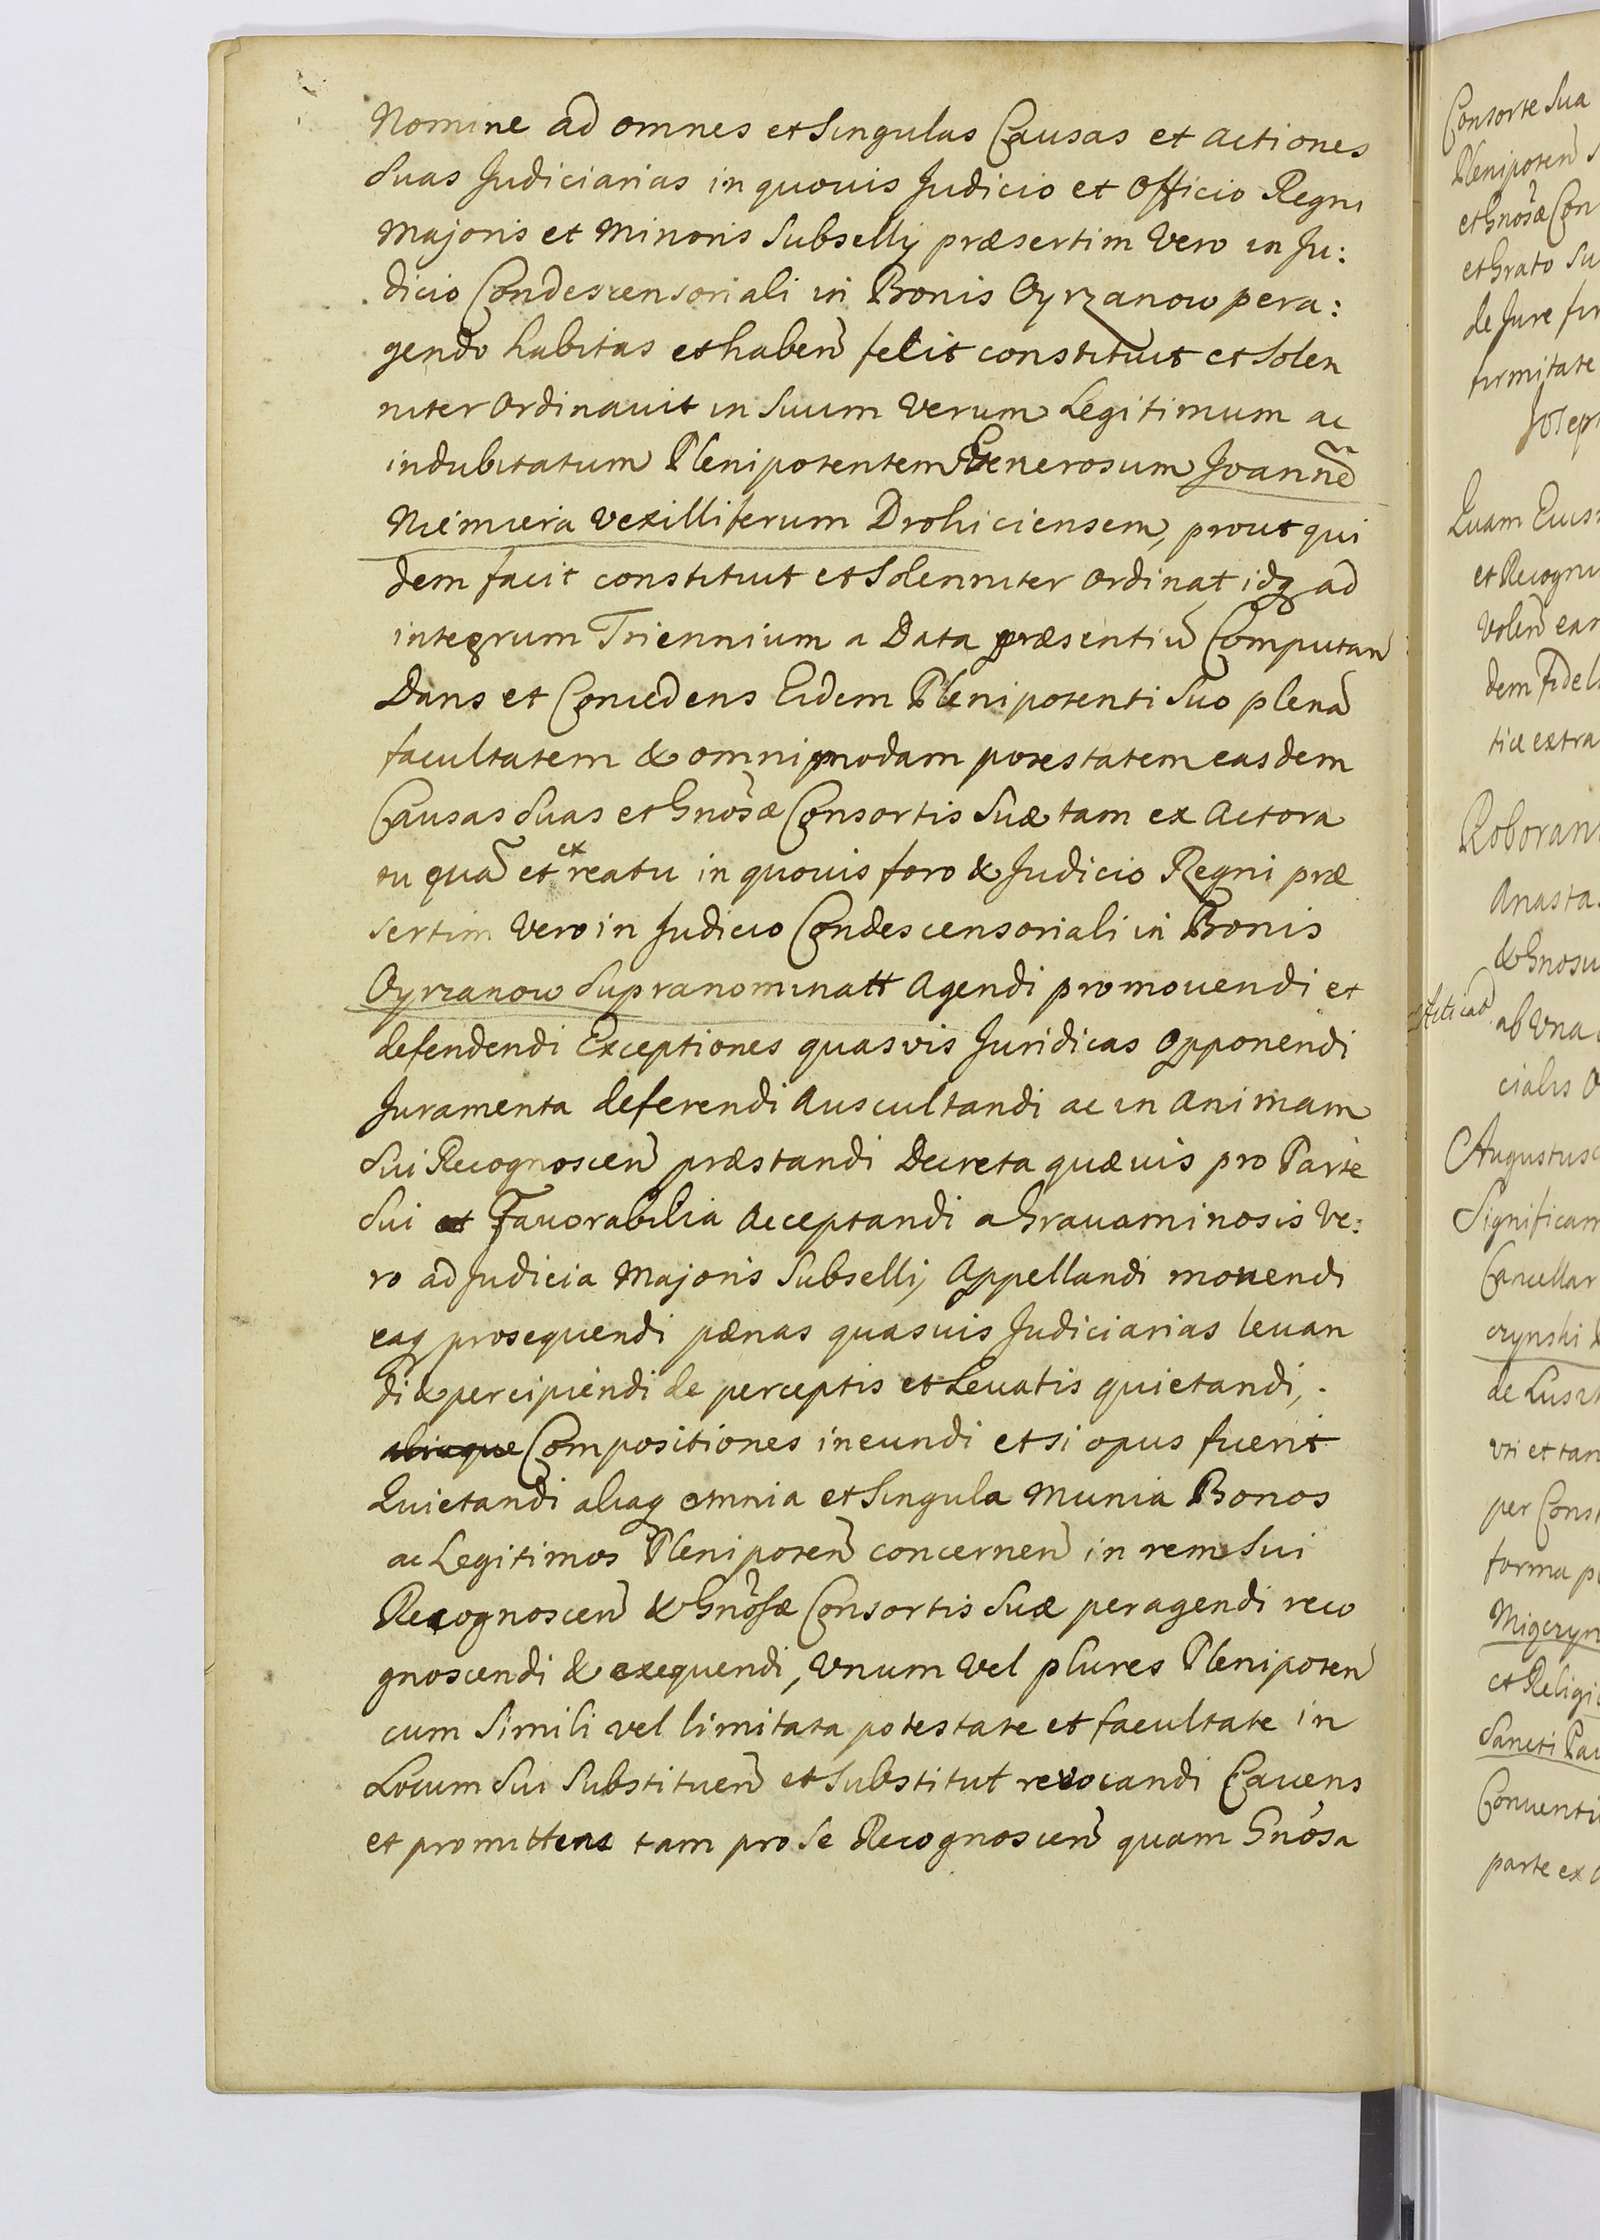 Nomine ad omnes et Singulas Causas et actiones
Suas Judiciarias in quovis Judicio et Officio Regni
Majoris et Minoris Subsellÿ præsertim Vero in Ju:
dicio Condescensoriali in Bonis Oyrzanow pera:
gendo habitas et haben̄ fecit constituit et Solen
niter Ordinavit in Suum Verum Legitimum ac
indubitatum Plenipotentem Generosum Joann̄e
Niemiera Vexilliferum Drohiciensem, prout qui
dem facit constituit et Solenniter Ordinat idq ad
integrum Triennium a Data præsentiū Computan̄
Dans et Concedens Eidem Plenipotenti Suo plenā
facultatem & omnimodam potestatem easdem
Causas Suas et Gnosæ Consortis Suæ tam ex Actora
tu quā et ex reatu in quovis foro & Judicio Regni præ
sertim Vero in Judicio Condescensoriali in Bonis
Oyrzanow Supranominatt Agendi promovendi et
defendendi Exceptiones quasvis Juridicas Opponendi
Juramenta deferendi Auscultandi ac in Animam
Sui Recognoscen̄ præstandi Decreta quævis pro Parte
Sui et Favorabilia Acceptandi a Gravaminosis Ve:
ro ad Judicia Majoris Subsellÿ Appellandi movendi
eaq prosequendi pænas quasvis Judiciarias levan
di & percipiendi de perceptis et Levatis quietandi,
Compositiones ineundi et si opus fuerit
Quietandi aliaq omnia et Singula Munia Bonos
ac Legitimos Plenipoten̄ concernen̄ in rem Sui
Recognoscen̄ & Gnosæ Consortis Suæ peragendi reco
gnoscendi & exequendi, Vnum Vel plures Plenipoten̄
cum Simili vel limitata potestate et facultate in
Locum Sui Substituen̄ et Substitut revocandi Cavens
et promittens tam pro Se Recognoscen̄ quam Gnosa
Consorte Sua
Plenipoten̄
et Gnosæ Con
et Grato Su
de Jure fir
firmitate
Joseph
Quam Eius
et Recogni
Volen̄ ean
dem Fidel
tiæ extra
Roborans
Anasta
& Gnosu
ab Vna
cialis O
Augustus
Significam
Cancellar
czynski &
de Lus
vti et tan
per Cons
forma p
et Religi
Sancti Pau
Conventu
parte ex